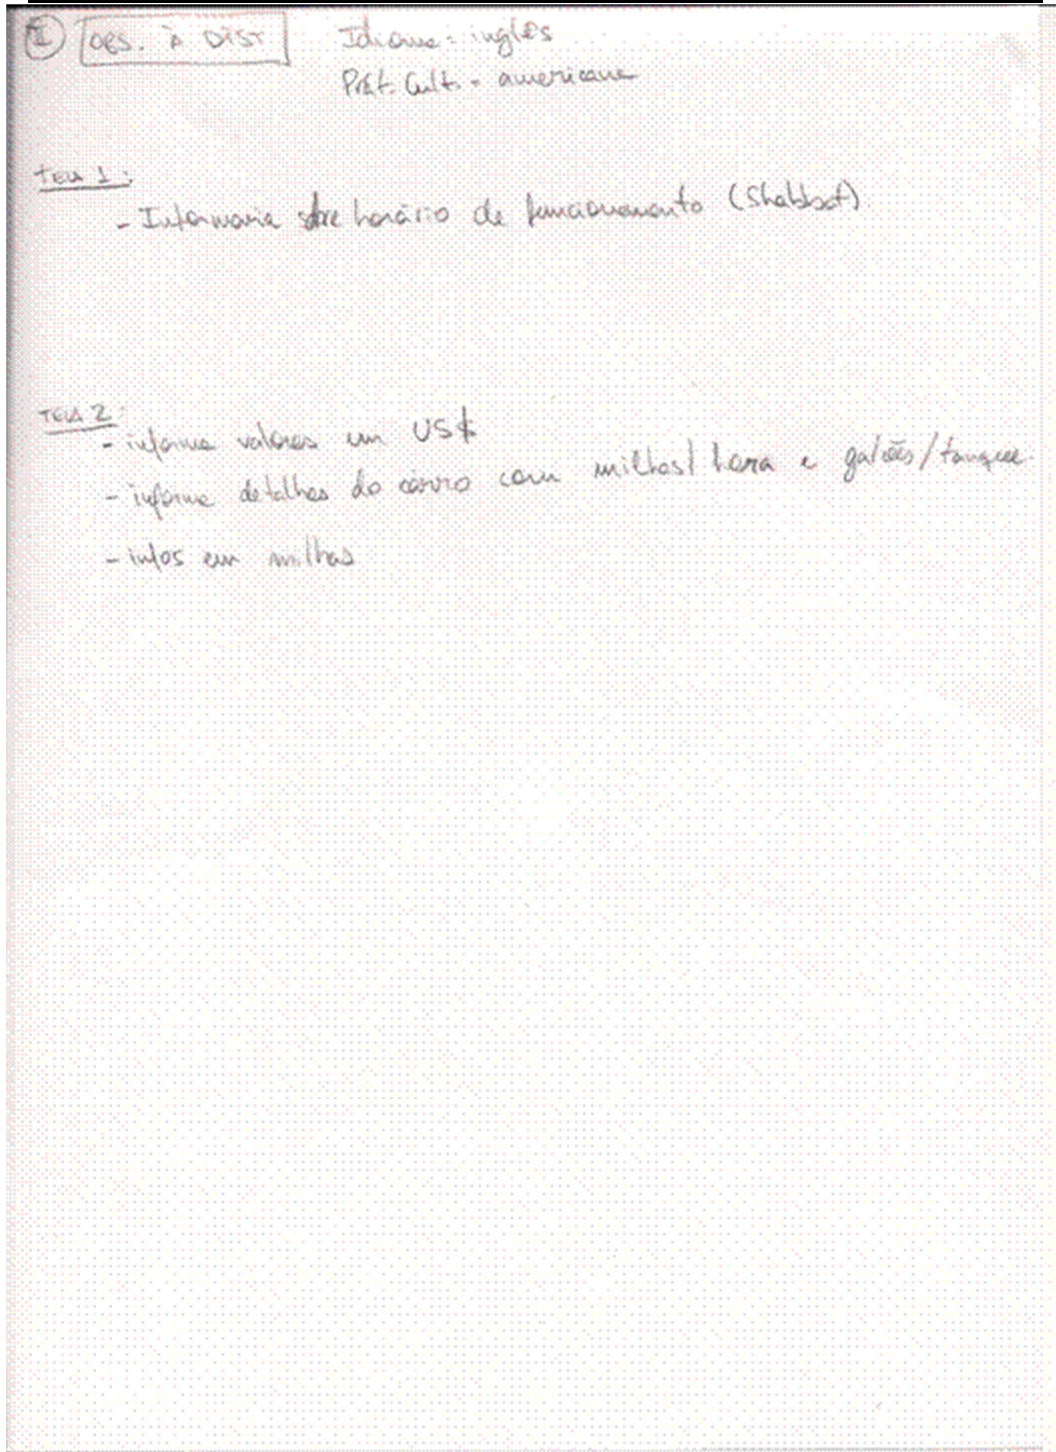 I OBS. À DIST Idioma = inglês
Prát. Cult. = americana
TELA 1:
- Informaria sobre horário de funcionamento (Shabbat).
TELA 2:
- informa valores em US$
- informa detalhes do carro com milhas/hora e galões/tanque.
- infos em milhas